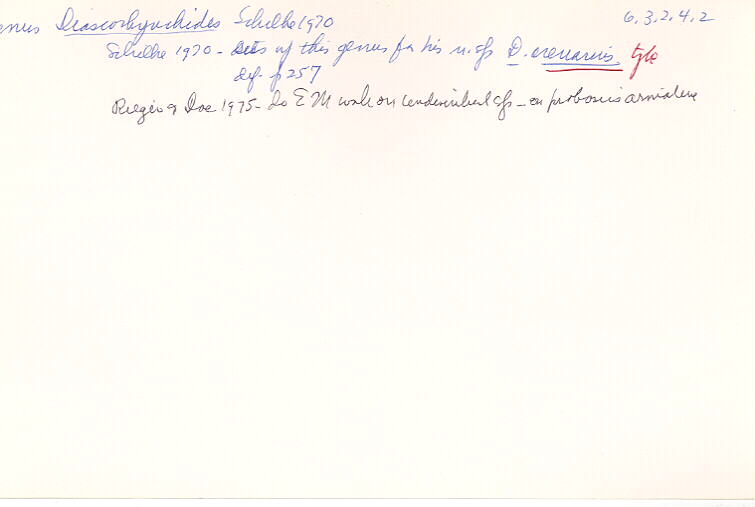 enus Diascorhynchides Schilke 1970 6.3.2.4.2
Schilke 1970 - sets up this genus for his n.sp D. arenarius type
def. p 257
Rieger & Doe 1975 - do EM work on undescribed sps - on proboscis armature